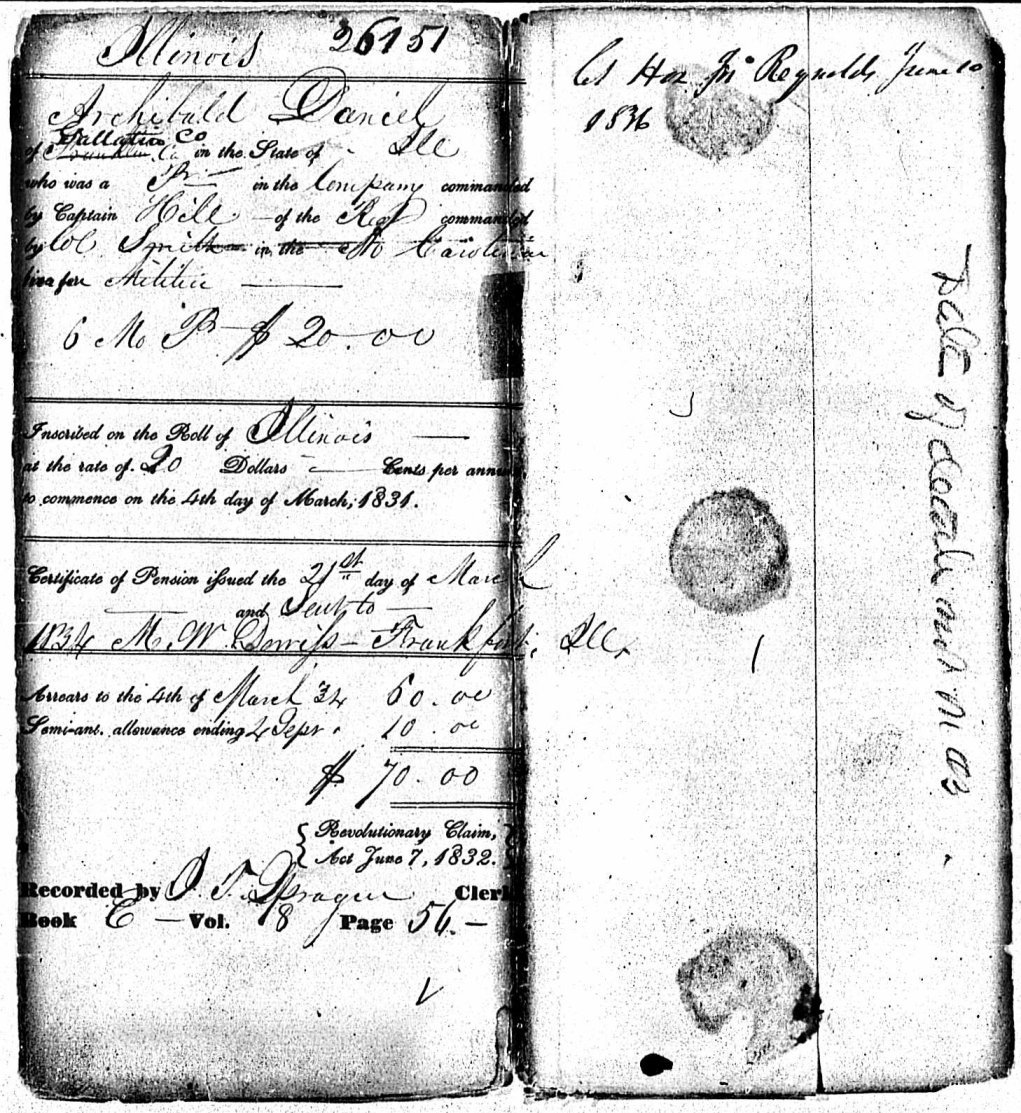 Illinois 26151
Archibald Daniel
Gallatin Co
of Franklin Co in the State of Ill
who was a Pri in the Company commanded
by Captain Hill of the Reg commanded
by Col Smith in the No Carolina
line for Militia
6 Mo Pr $ 20.00
Inscribed on the Roll of Illinois
at the rate of 20 Dollars Cents per annum
to commence on the 4th day of March, 1831.
Certificate of Pension issued the 21st day of March
and Sent to
1834 M. W. Frankfort, Ill.
Arrears to the 4th of March 34 60.00
Semi-ant. allowance ending 4 Sepr. 10.00
$ 70.00
Revolutionary Claim,
Act June 7, 1832.
Recorded by Clerk
Book E Vol. 8 Page 56.
Hon. Jno Reynolds June 10
1836
Date of death not in as